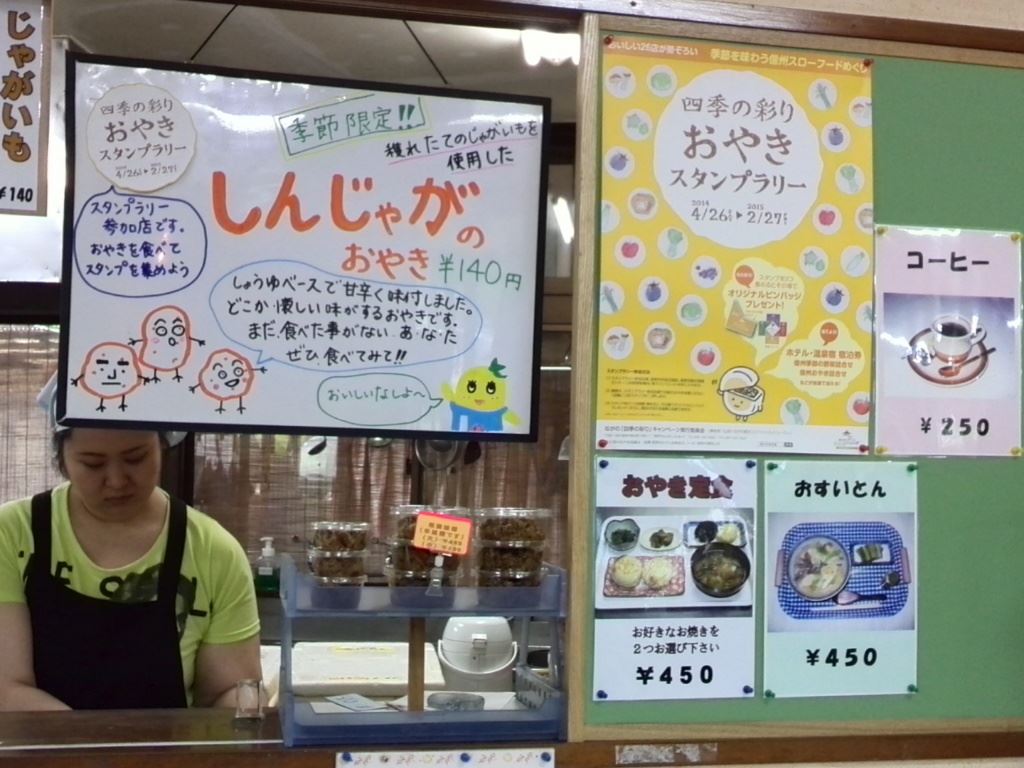 じゃがいも
¥140
四季の彩り
おやき
スタンプラリー
4/26 ▶ 2/27
季節限定!!
穫れたてのじゃがいもを
使用した
しんじゃがの
おやき ¥140円
スタンプラリー
参加店です。
おやきを食べて
スタンプを集めよう
しょうゆベースで甘辛く味付しました。
どこか懐しい味がするおやきです。
まだ、食べた事がない、あ・な・た
ぜひ、食べてみて!!
おいしいなしよ〜
おいしい26店が勢ぞろい
季節を味わう信州スローフードめぐり
四季の彩り
おやき
スタンプラリー
2014 2015
4/26 ▶ 2/27
オリジナルピンバッジ
プレゼント!
ホテル・温泉宿 宿泊券
コーヒー
¥250
おやき定食
お好きなお焼きを
2つお選び下さい
¥450
おすいとん
¥450